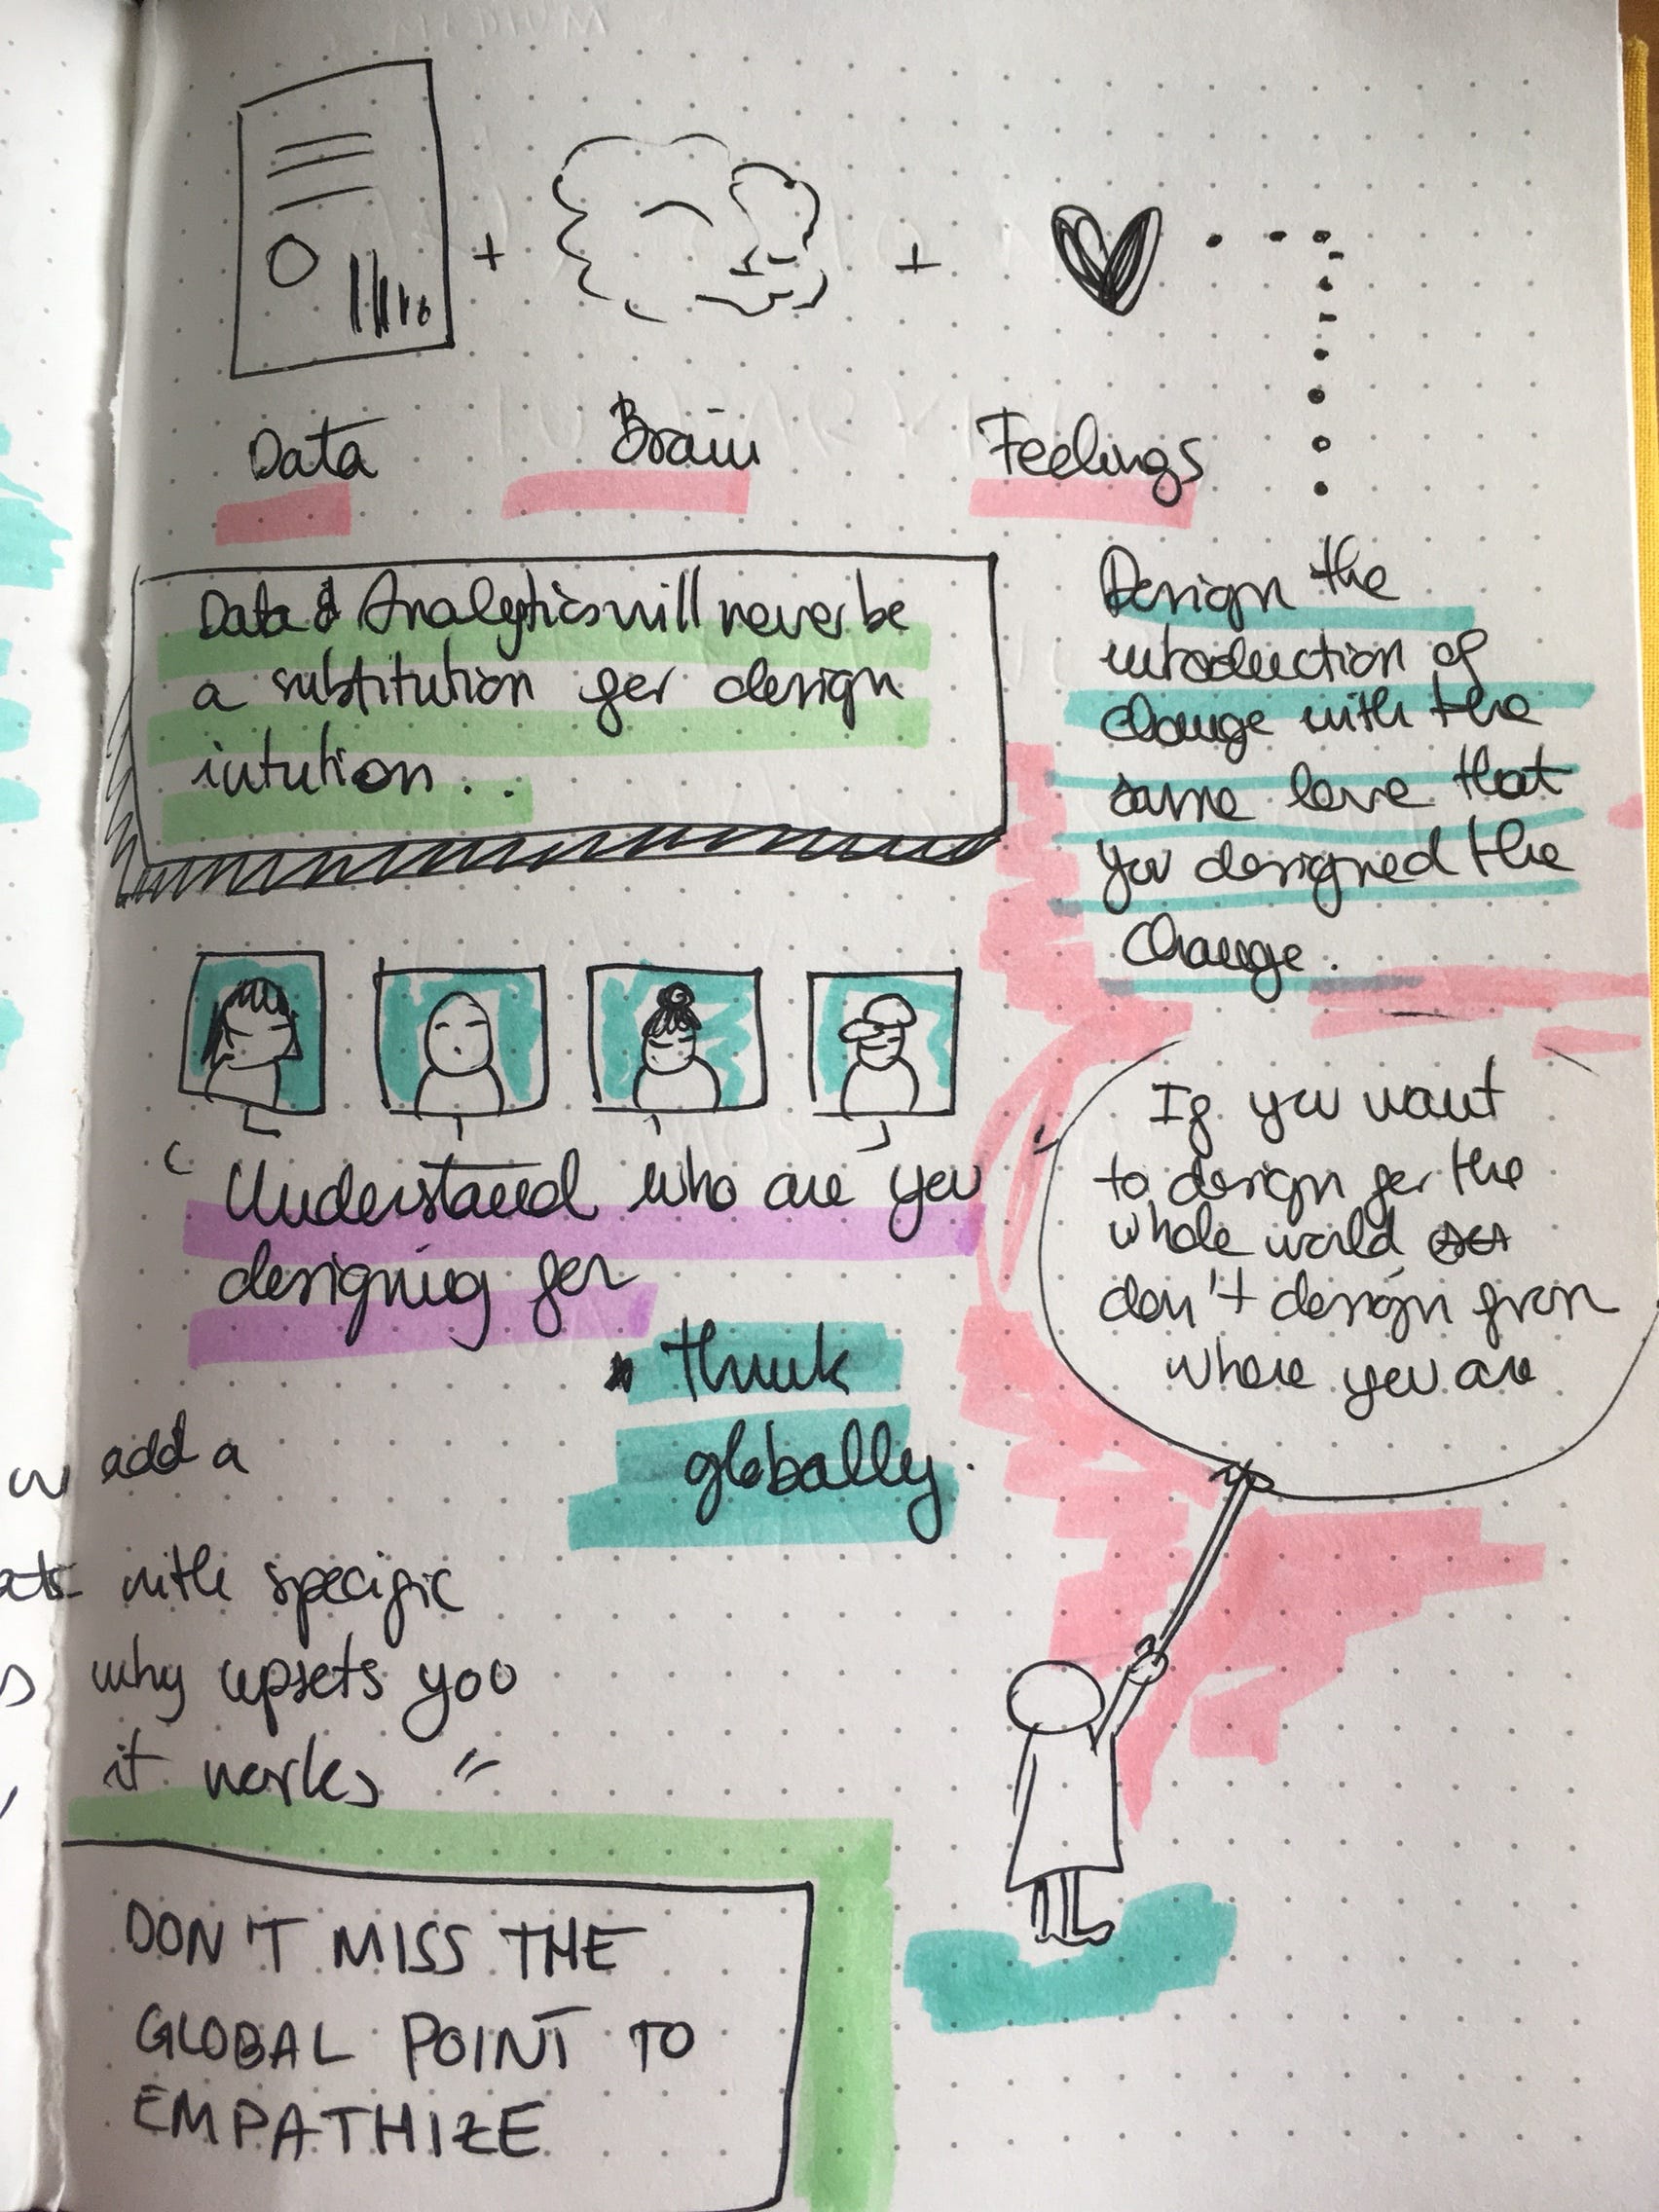 Data + Brain + Feelings
Data & Analytics will never be
a substitution for design
intution...
Design the
introduction of
change with the
same love that
you designed the
change.
Understand who are you
designing for
think
globally.
If you want
to design for the
whole world
don't design from
where you are
add a
with specific
why upsets you
it works "
DON'T MISS THE
GLOBAL POINT TO
EMPATHIZE